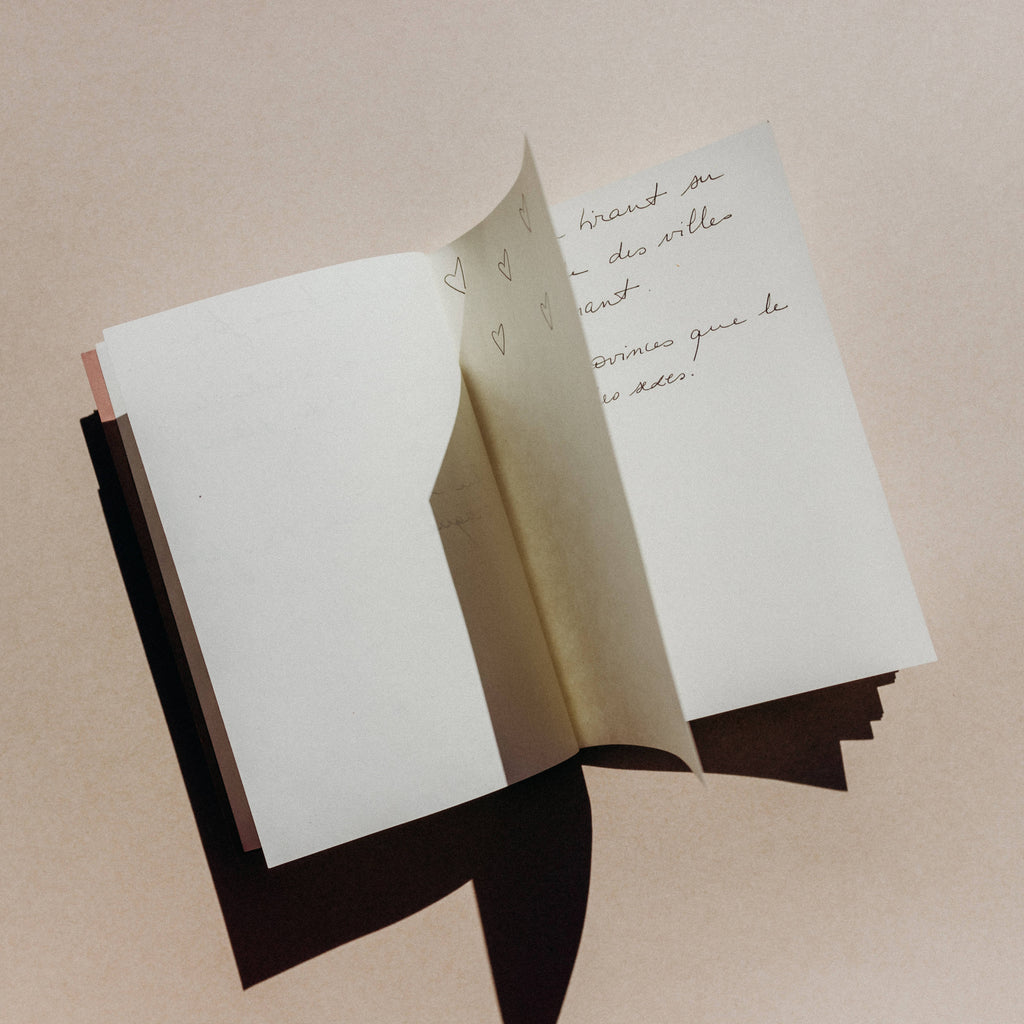 tirant su
des villes
nant.
ovinces que le
es sexes.